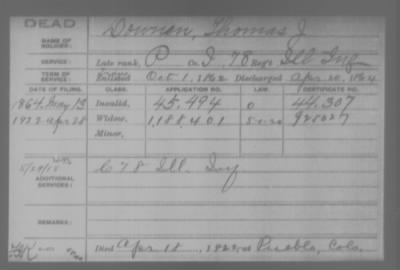 DEAD
NAME OF SOLDIER: Downen, Thomas J.
SERVICE: Late rank, P Co. I, 78 Reg't Ill Inf
TERM OF SERVICE: Enlisted Oct 1, 1862 Discharged Apr 20, 1864
DATE OF FILING. CLASS. APPLICATION NO. LAW. CERTIFICATE NO.
1864 May 13 Invalid, 45,494 0 44,307
1922 Apr 28 Widow, 1,188,401 928027
Minor,
ADDITIONAL SERVICES: C 78 Ill. Inf
REMARKS:
Died Apr 18, 1922 at Pueblo, Colo.